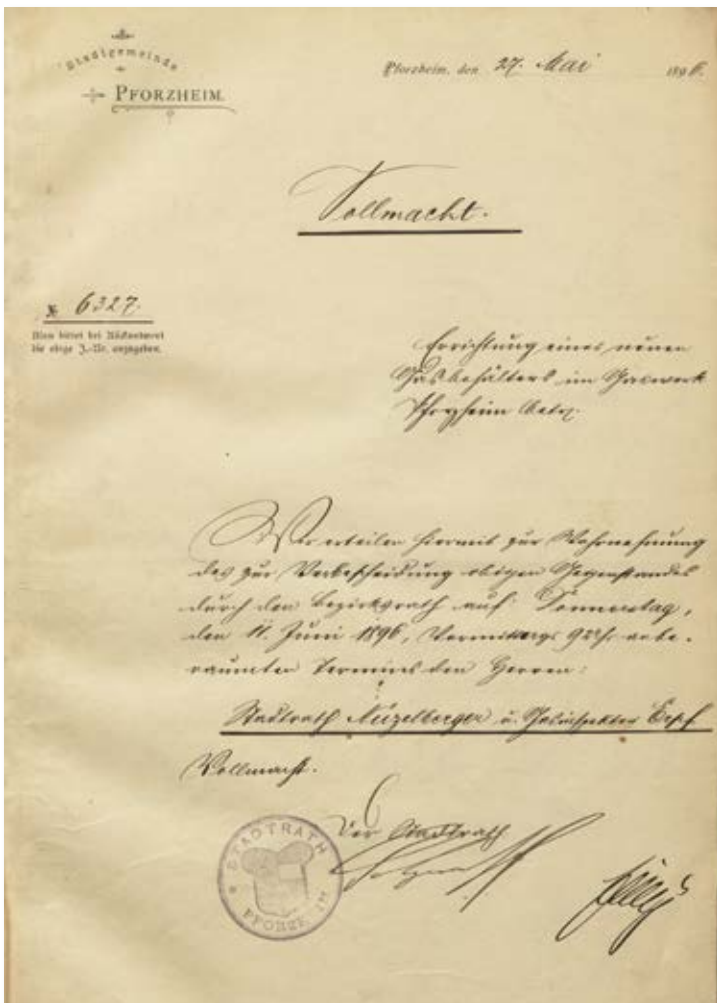 Stadtgemeinde
PFORZHEIM.
Pforzheim, den 27. Mai 1896.
Vollmacht.
№ 6327.
Man bittet bei Rückantwort
die obige J.-Nr. anzugeben.
Errichtung eines neuen
Gasbehälters im Gaswerk
Pforzheim betr.
Wir erteilen hiermit zur Wahrnehmung
des zur Verbescheidung obigen Gegenstandes
durch den Bezirksrath auf: Donnerstag,
den 11. Juni 1896, Vormittags 9 Uhr anbe-
raumten Termins den Herren:
Stadtrath Nüzelberger u. Gasinspektor Erpf
Vollmacht.
Der Stadtrath
STADTRATH
PFORZHEIM